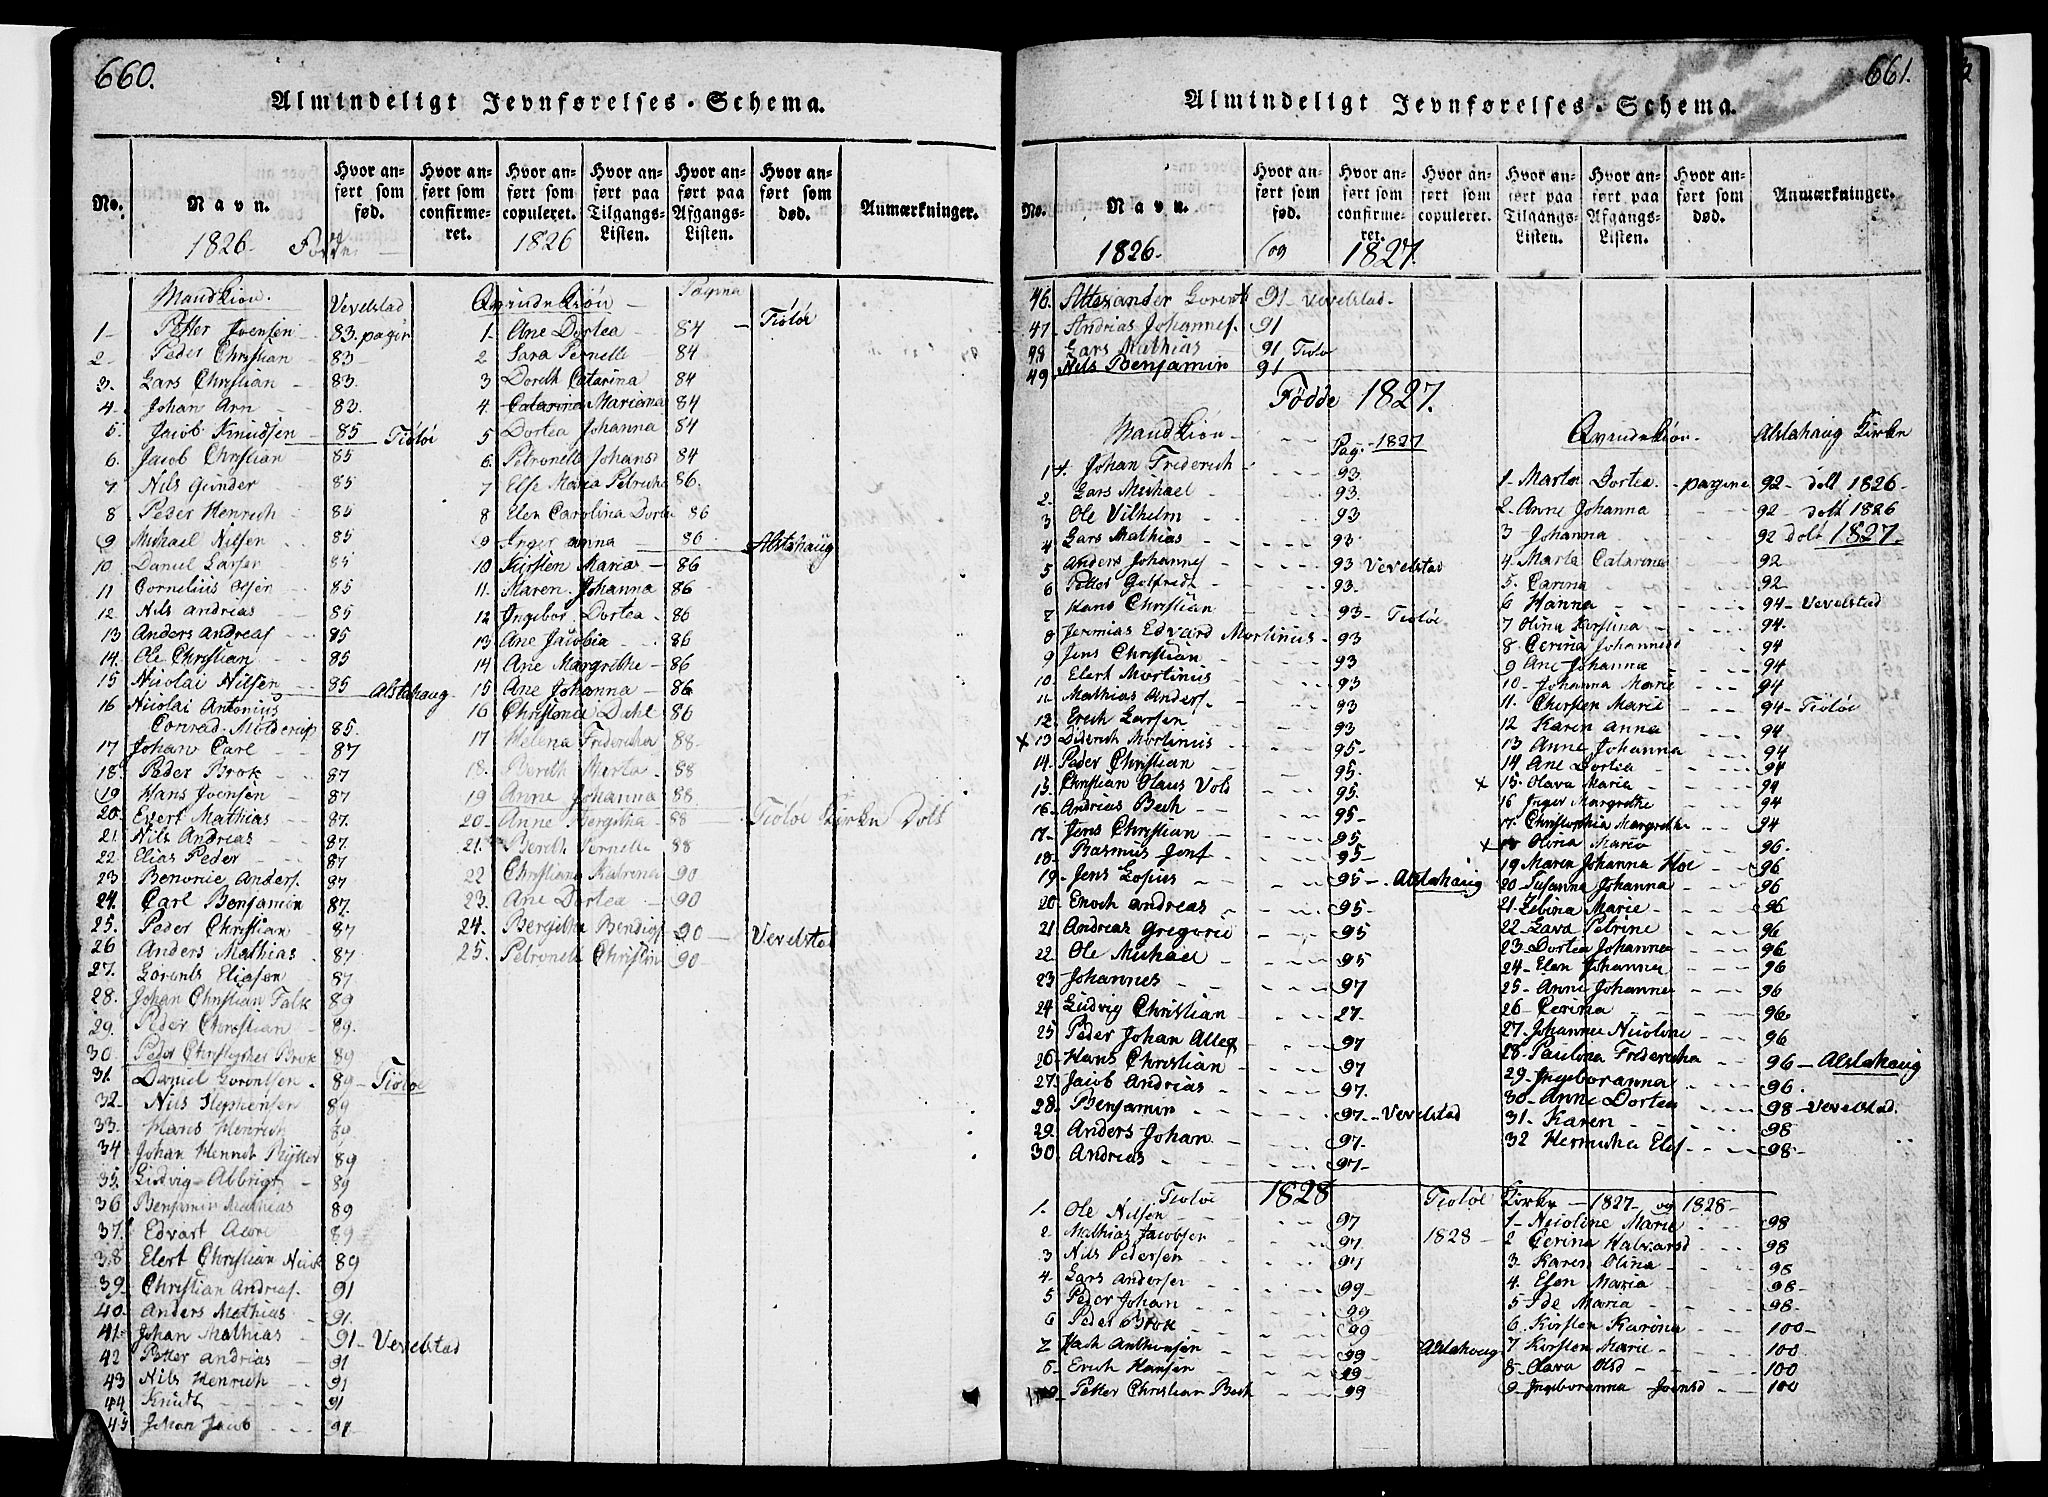 660.
Almindeligt Jevnførelses-Schema.
No.
Navn.
Hvor anført som fød.
Hvor anført som confirmeret.
Hvor anført som copuleret.
Hvor anført paa Tilgangs-Listen.
Hvor anført paa Afgangs-Listen.
Hvor anført som død.
Anmærkninger.
1826. Fødde 1826
Mandkiøn. Vevelstad
1 Petter Joensen 83. pagin
2 Peder Christian 83
3. Lars Christian 83.
4. Johan Arn 83.
5. Jacob Knudsen 85 Tiøtøe
6. Jacob Christian 85
7 Nils Gunder 85
8 Peder Henrich 85
9 Michael Nilsen 85
10 Daniel Larsen 85
11 Cornelius Olsen 85
12 Nils Andrias 85
13 Anders Andreas 85
14. Ole Christian 85
15 Nicolai Nilsen 85 Alstahaug
16 Nicolai Antonius
Conrad 85.
17 Johan Carl 87
18. Peder Brok 87
19 Hans Joensen 87
20 Evert Mathias 87.
21. Nils Andrias 87.
22. Elias Peder 87
23 Benonie Anders. 87
24. Carl Benjamin 87.
25. Peder Christian 87
26 Anders Mathias 87
27. Lorents Eliasen 87
28. Johan Christian Falk 89
29. Peder Christian 89.
30. Peder Christopher Brok 89
31. Daniel Lorentsen 89 Tiøtøe
32. Nils Stephensen 89
33. Hans Henrich 89
34 Johan Henrik 89
35. Ludvig Albrigt 89
36 Benjamin Mathias 89
37. Edvart 89
38 Elert Christian 89
39 Christian Andreas. 91
40. Anders Mathias 91.
41 Johan Mathias 91 Vevelstad
42 Petter Andrias 91
43 Nils Henrich 91
44 Knudt 91
45 Johan Jacob 91
Qvindekiøn Pagina
1- Ane Dortea 84 Tiøtøe
2 Sara Pernelle 84
3 Doreth Catarina 84
4. Catarina Mariana 84
5 Dortea Johanna 84
6. Petronelle Johans 84
7 Else Maria Petricha 86.
8 Elen Carolina Dortea 86
9 Inger anna 86 Alstahaug
10 Kirsten Maria 86
11. Maren Johanna 86
12 Ingebor Dortea 86
13 Ane Jacobia 86
14 Ane Margrethe 86
15 Ane Johanna 86
16 Christence Dahl 86
17 Helena Fridericha 88
18. Bereth Marta 88
19 Anne Johanna 88
20 Anne Bergitha 88 Tiøtøe Kirke Døbt
21. Bereth Pernelle 88
22 Christiana Katrina 90
23. Ane Dortea 90
24. Bergitha 90 Vevelstad
25. Petronelle Christin 90
661.
Almindeligt Jevnførelses-Schema.
No.
Navn.
Hvor anført som fød.
Hvor anført som confirmeret.
Hvor anført som copuleret.
Hvor anført paa Tilgangs-Listen.
Hvor anført paa Afgangs-Listen.
Hvor anført som død.
Anmærkninger.
1826. og 1827.
46. Allexander Lorents 91 Vevelstad
47 Andrias Johannes. 91
48 Lars Mathias 91 Tiøtø
49 Nils Benjamin 91
Fødde 1827.
Mandkiøn Pag. 1827
1. Johan Friderich 93.
2. Lars Michael 93.
3 Ole Vilhelm 93
4 Lars Mathias 93.
5 Anders Johannes 93 Vevelstad
6 Petter Gotfredt 93.
7 Hans Christian 93 Tiøtøe.
8 Jeremias Edvard Mortinus 93
9 Jens Christian 93
10 Elert Mortinus 93
11 Mathias Anders. 93
12. Erich Larsen 93
x 13 Diderich Mortinus 95
14. Peder Christian 95.
15. Christian Olaus Vold 95.
16 Andrias Bech 95
17 Jens Christian 95
18. Rasmus Jens. 95
19. Jens 95 Alstahaug
20 Enoch andreas 95
21 Andreas Gregorie 95
22. Ole Michael 95
23 Johannes 97
24 Ludvig Christian 27.
25 Peder Johan 97
26 Hans Christian 97
27. Jacob Andrias 97.
28. Benjamin 97 Vevelstad
29. Anders Johan 97.
30. Andrias 97
Qvindekiøn. Alstahaug Kirke
1 Marta Dortea pagine 92 døbt 1826
2 Anne Johanna 92 døbt 1826
3 Johanna 92 døbt 1827.
4. Marta Catarina 92
5. Carina 92
6 Hanna 94 Vevelstad
7 Olina Kirstina 94.
8 Cerina Johannesd 94
9 Ane Johanna 94
10 Johanna Marie 94
11. Chirsten Marie 94 Tiøtøe
12 Karen anna 94
13 Anne Johanna 94
14 Ane Dortea 94
x 15. Olava Maria 94
16 Inger Margrethe 94
17. Christophia Margrethe 94
x 18 Olina Maria 96.
19 Maren Johanna Hoe 96
20 Susanna Johanna 96
21. Zebina Marie 96
22 Lava Petrine 96
23. Dortea Johanna 96
24- Elen Johanna 96
25- Anne Johanna 96
26 Cerina 96
27. Johanna Nicoline 96
28. Paulina Fredericha 96 Alstahaug
29. Ingeboranna 96.
30 Anne Dortea 98 Vevelstad.
31. Karen 98
32 Hermicha 98
Tiøtøe 1828
1. Ole Nilsen 97
2 Mathias Jacobsen 97
3 Nils Pedersen 97
4. Lars Andersen 99
5 Peder Johan 99
6 Peder Brok 99
7 99
8 Erich Hansen 99
Petter Christian Bech 99
Tiøtøe Kirke 1827 og 1828
1 Nicoline Marie 98
1828 2 Cerina Halvarsd 98
3. Karen Olina 98
4. Elen Maria 98
5 Ide Maria 98
6. Kirsten Karona 100
Alstahaug 7 Kirsten Marie 100
8. Olava Olsd 100
9 Ingeboranna Joensd 100